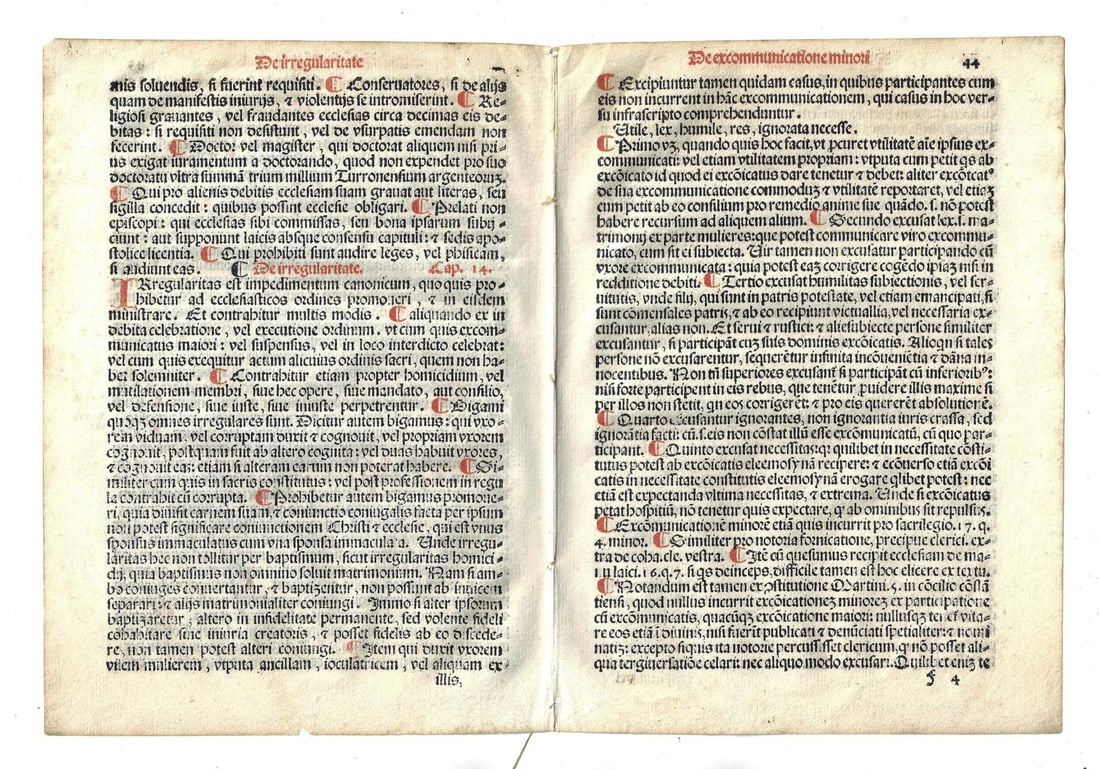 De irregularitate
mis soluendis, si fuerint requisiti. ¶ Conseruatores, si de alijs
quam de manifestis iniurijs, ⁊ violentijs se intromiserint. ¶ Re-
ligiosi grauantes, vel fraudantes ecclesias circa decimas eis de-
bitas: si requisiti non desistunt, vel de vsurpatis emendam non
fecerint. ¶ Doctor vel magister, qui doctorat aliquem nisi pri-
us exigat iuramentum a doctorando, quod non expendet pro suo
doctoratu vltra summã trium millium Turronensium argenteorũ.
¶ Qui pro alienis debitis ecclesiam suam grauat aut literas, seu
sigilla concedit: quibus possint ecclesie obligari. ¶ Prelati non
episcopi: qui ecclesias sibi commissas, seu bona ipsarum subij-
ciunt: aut supponunt laicis absque consensu capituli: ⁊ sedis apo-
stolice licentia. ¶ Qui prohibiti sunt audire leges, vel phisicam,
si audiunt eas. ¶ De irregularitate. Cap. 14.
IRregularitas est impedimentum canonicum, quo quis pro-
hibetur ad ecclesiasticos ordines promoueri, ⁊ in eisdem
ministrare. Et contrahitur multis modis. ¶ aliquando ex in
debita celebratione, vel executione ordinum. vt cum quis excom-
municatus maiori: vel suspensus, vel in loco interdicto celebrat:
vel cum quis exequitur actum alicuius ordinis sacri, quem non ha-
bet solemniter. ¶ Contrahitur etiam propter homicidium, vel
mutilationem membri, siue hec opere, siue mandato, aut consilio,
vel defensione, siue iuste, siue iniuste perpetrentur. ¶ Bigami
quoqꝫ omnes irregulares sunt. Dicitur autem bigamus: qui vxo-
rem viduam, vel corruptam duxit ⁊ cognouit, vel propriam vxorem
cognouit, postquam fuit ab altero cognita: vel duas habuit vxores,
⁊ cognouit eas: etiam si alteram earum non poterat habere. ¶ Si-
militer cum quis in sacris constitutus: vel post professionem in regu
la contrahit cũ corrupta. ¶ Prohibetur autem bigamus promoue-
ri, quia diuisit carnem suam, ⁊ coniunctio coniugalis facta per ipsum
non potest significare coniunctionem Christi ⁊ ecclesie, qui est vnus
sponsus immaculatus cum vna sponsa immaculata. Unde irregu-
laritas hec non tollitur per baptismum, sicut irregularitas homici-
dij, quia baptismus non omnino soluit matrimonium. Nam si am-
bo coniuges conuertantur, ⁊ baptizentur, non possunt ab inuicem
separari: ⁊ alijs matrimonialiter coniungi. Immo si alter ipsorum
baptizaretur, altero in infidelitate permanente, sed volente fideli
cohabitare sine iniuria creatoris, ⁊ posset fidelis ab eo discede-
re, non tamen potest alteri coniungi. ¶ Item qui duxit vxorem
vilem mulierem, vtputa ancillam, ioculatricem, vel aliquam ex-
illis,
De excommunicatione minori 44
¶ Excipiuntur tamen quidam casus, in quibus participantes cum
eis non incurrent in hãc excommunicationem, qui casus in hoc ver-
su infrascripto comprehenduntur.
Utile, lex, humile, res, ignorata necesse.
¶ Primo vꝫ, quando quis hoc facit, vt ꝓcuret vtilitatẽ aĩe ipsius ex-
communicati: vel etiam vtilitatem propriam: vtputa cum petit qs ab
excõicato id quod ei excõicatus dare tenetur ⁊ debet: aliter excõicat⁹
de sua excommunicatione commodũ ⁊ vtilitatẽ reportaret, vel etiã
cum petit ab eo consilium pro remedio anime sue, quãdo. s. nõ potest
habere recursum ad aliquem alium. ¶ Secundo excusat lex. i. ma-
trimonij ex parte mulieres: que potest communicare viro excommu-
nicato, cum sit ei subiecta. Uir tamen non excusatur participando cũ
vxore excommunicata: quia potest eaꝫ corrigere cogẽdo ipsaꝫ nisi in
redditione debiti. ¶ Tertio excusat humilitas subiectionis, vel ser-
uitutis, vnde filij, qui sunt in patris potestate, vel etiam emancipati, si
sunt cõmensales patris, ⁊ ab eo recipiunt victuallia, vel necessaria ex-
cusantur, alias non. Et serui ⁊ rustici: ⁊ alie subiecte persone similiter
excusantur, si participãt cuꝫ suis dominis excõicatis. Alioqn si tales
persone nõ excusarentur, sequerẽtur infinita incõuenietia ⁊ dãna in-
nocentibus. Non tñ superiores excusanť si participãt cũ inferiorib⁹:
nisi forte participent in eis rebus, que tenẽtur ꝓuidere illis maxime si
per illos non stetit, qn eos corrigerẽt: ⁊ pro eis quererẽt absolutionẽ.
¶ Quarto excusantur ignorantes, non ignorantia iuris crassa, sed
ignorãtia facti: cũ. s. eis non cõstat illũ esse excõmunicatũ, cũ quo par-
ticipant. ¶ Quinto excusat necessitas: qꝛ quilibet in necessitate cõsti-
tutus potest ab excõicatis eleemosynã recipere: ⁊ ecõuerso etiã excõi
catis in necessitate constitutis eleemosynã erogare qlibet potest: nec
etiã est expectanda vltima necessitas, ⁊ extrema. Unde si excõicatus
petat hospitiũ, nõ tenetur quis expectare, ꝙ ab ominibus sit repulsus.
¶ Excõmunicationẽ minorẽ etiã quis incurrit pro sacrilegio. 17. q.
4. minor. ¶ Similiter pro notoria fornicatione, precipue clerici. ex-
tra de coha. cle. vestra. ¶ Itẽ cũ quesumus recipit ecclesiam de ma-
nu laici. 16. q. 7. si qs deinceps, difficile tamen est hoc elicere ex textu.
¶ Notandum est tamen ex ꝯstitutione Martini. 5. in cõcilio cõstã
tiensi, quod nullus incurrit excõicationeꝫ minoreꝫ ex participatione
cũ excõicatis, quacũqꝫ excõicatione maiori: nullusqꝫ tenet᷑ vita-
re eos etiã ĩ diuinis, nisi fuerĩt publicati ⁊ denũciati specialiter: ⁊ nomi
natiꝫ: excepto si quis ita notorie percussisset clericum, ꝙ nõ posset ali-
qua tergiuersatiõe celari: nec aliquo modo excusari. Quilibet eniꝫ te
f 4